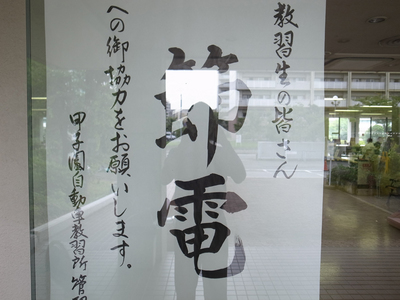 教習生の皆さん
節電
への御協力をお願いします。
甲子園自動車教習所 管理